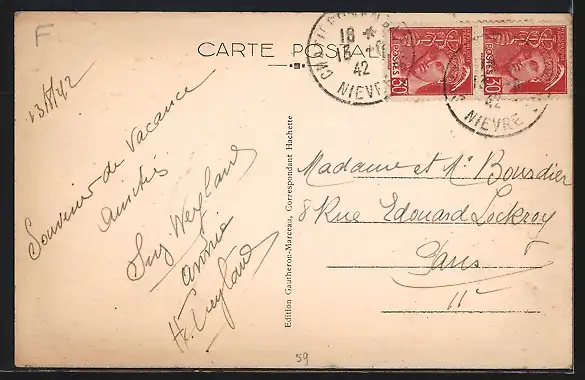 F
CARTE POSTALE
18 *
13
42
NIEVRE
42
NIEVRE
POSTES
30
POSTES
30
13/8/42
Souvenir de Vacance
Amitiés
Suz Weyland
Annie
H. Weyland
Edition Gautheron-Marceau, Correspondant Hachette
Madame et Mr Bourdier
8 Rue Edouard Lockroy
Paris
11e
59